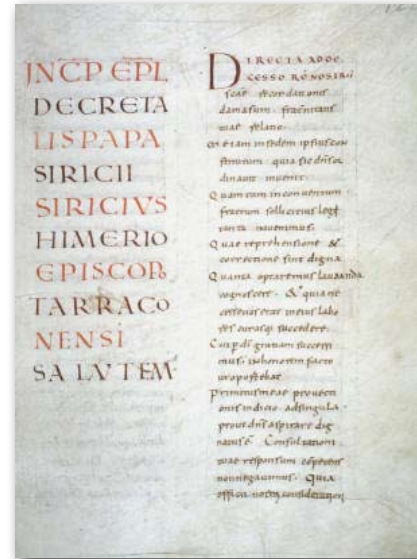 INC̅P EP̅L
DECRETA
LIS PAPA
SIRICII
SIRICIVS
HIMERIO
EPISCOP
TARRACO
NENSI
SALVTEM
DIRECTA AD DE
scae recordationis
damasum. fraternitatis
tuae relatio.
iam in sedem ipsius con
stitutum. quia sic dn̅s or
dinauit inuenit.
Quam cum in conuentum.
fratrum sollicitius
tanta inuenimus.
Quae reprehensione &
correctione sint digna.
Quanta optaremus laudanda
cognoscere. & quia ne
cesse nos erat in eius labo
res curasq. succedere.
Cui p di̅ gratiam successi
mus. in honorem facto
ut oportebat.
Primitus meae prouecti
onis indicio. ad singula
prout dn̅s aspirare dig
natus e̅. Consultationi
tuae responsum cōpetens
non negauimus. Quia
officii nostri consideration